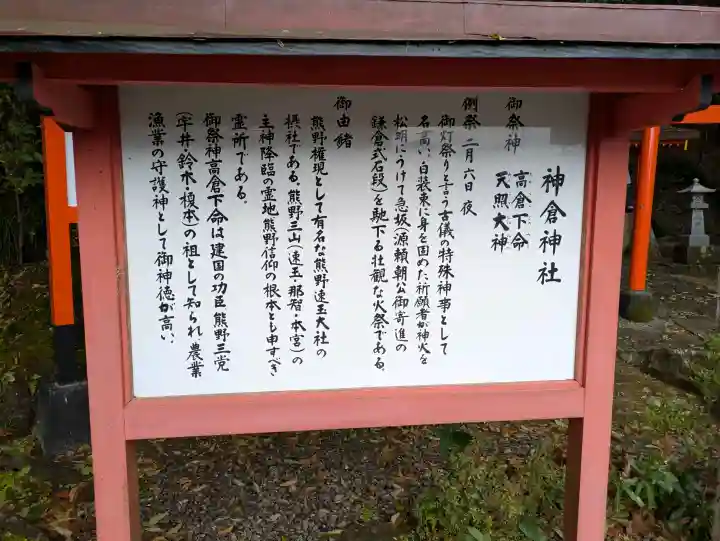 神倉神社
御祭神 高倉下命
天照大神
例祭 二月六日 夜
御灯祭りと言う古儀の特殊神事として
名高い、白装束に身を固めた祈願者が神火を
松明にうけて急坂(源頼朝公御寄進の
鎌倉式石段)を馳下る壮観な火祭である。
御由緒
熊野権現として有名な熊野速玉大社の
摂社である。熊野三山(速玉・那智・本宮)の
主神降臨の霊地熊野信仰の根本とも申すべき
霊所である。
御祭神高倉下命は建国の功臣熊野三党
(宇井・鈴木・榎本)の祖として知られ農業
漁業の守護神として御神徳が高い、